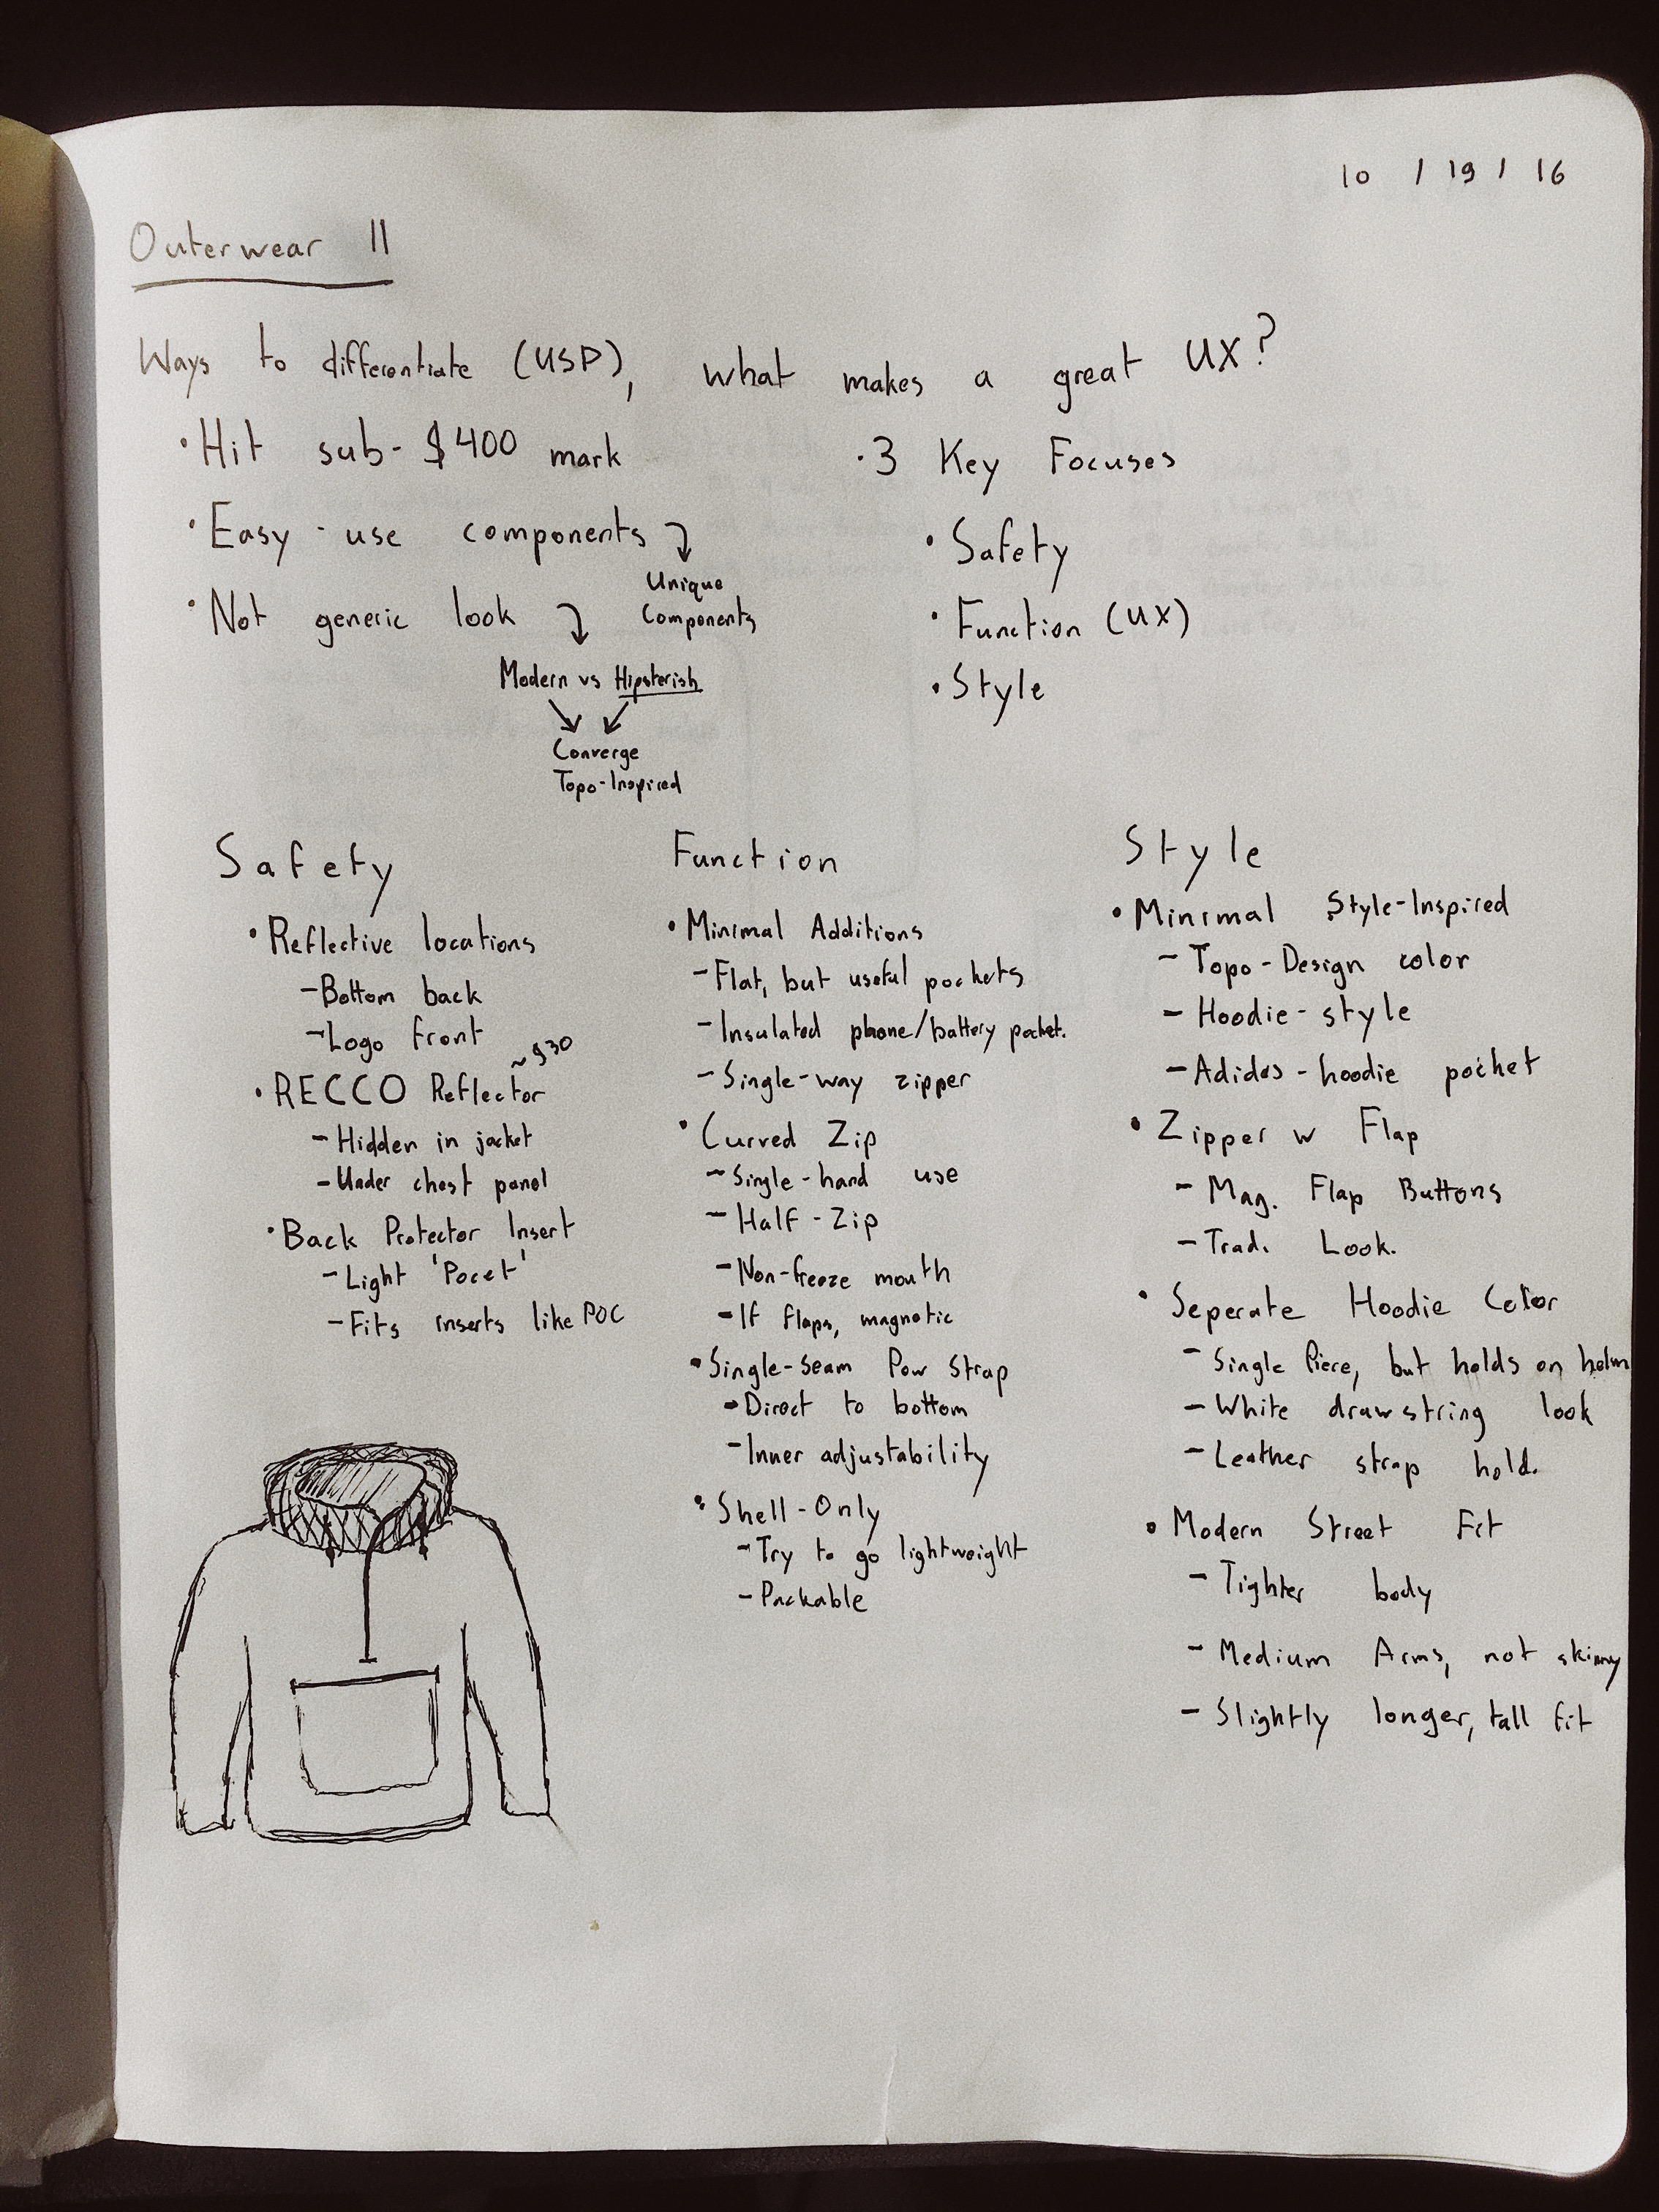 10 / 19 / 16
Outerwear II
Ways to differentiate (USP), what makes a great UX?
·Hit sub-$400 mark
·Easy-use components
Unique
Components
·Not generic look
Modern vs Hipsterish
Converge
Topo-Inspired
·3 Key Focuses
·Safety
·Function (UX)
·Style
Safety
·Reflective locations
-Bottom back
-Logo front
·RECCO Reflector ~$30
-Hidden in jacket
-Under chest panel
·Back Protector Insert
-Light 'Pocet'
-Fits inserts like POC
Function
·Minimal Additions
-Flat, but useful pockets
-Insulated phone/battery pocket.
-Single-way zipper
·Curved Zip
-Single-hand use
-Half-Zip
-Non-freeze mouth
-If flaps, magnetic
·Single-seam Pow Strap
-Direct to bottom
-Inner adjustability
·Shell-Only
-Try to go lightweight
-Packable
Style
·Minimal Style-Inspired
-Topo-Design color
-Hoodie-style
-Adidas-hoodie pocket
·Zipper w Flap
-Mag. Flap Buttons
-Trad. Look.
·Seperate Hoodie Color
-Single Piece, but holds on helm
-White drawstring look
-Leather strap hold.
·Modern Street Fit
-Tighter body
-Medium Arms, not skinny
-Slightly longer, tall fit